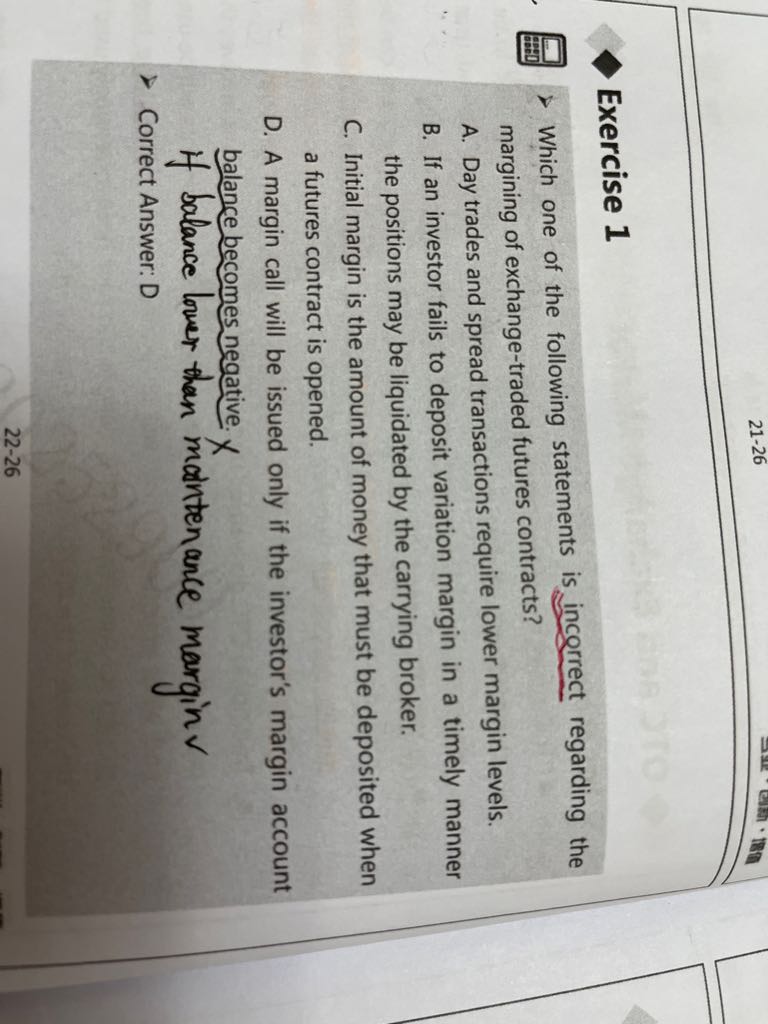 21-26
Exercise 1
Which one of the following statements is incorrect regarding the
margining of exchange-traded futures contracts?
A. Day trades and spread transactions require lower margin levels.
B. If an investor fails to deposit variation margin in a timely manner
the positions may be liquidated by the carrying broker.
C. Initial margin is the amount of money that must be deposited when
a futures contract is opened.
D. A margin call will be issued only if the investor's margin account
balance becomes negative. X
if balance lower than maintenance margin ✓
Correct Answer: D
22-26